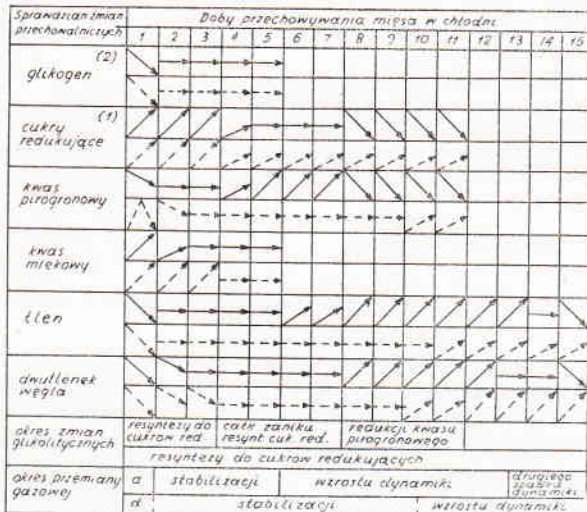 Sprawdzian zmian
przechowalniczych
Doby przechowywania mięsa w chłodni
1 2 3 4 5 6 7 8 9 10 11 12 13 14 15
(2)
glikogen
(1)
cukry
redukujące
kwas
pirogronowy
kwas
mlekowy
tlen
dwutlenek
węgla
okres zmian
glikolitycznych
resyntezy do
cukrów red.
całk zaniku
resynt cuk. red.
redukcji kwasu
pirogronowego
resyntezy do cukrów redukujących
okres przemiany
gazowej
a stabilizacji wzrostu dynamiki
drugiego
spadku
dynamiki
d stabilizacji wzrostu dynamiki